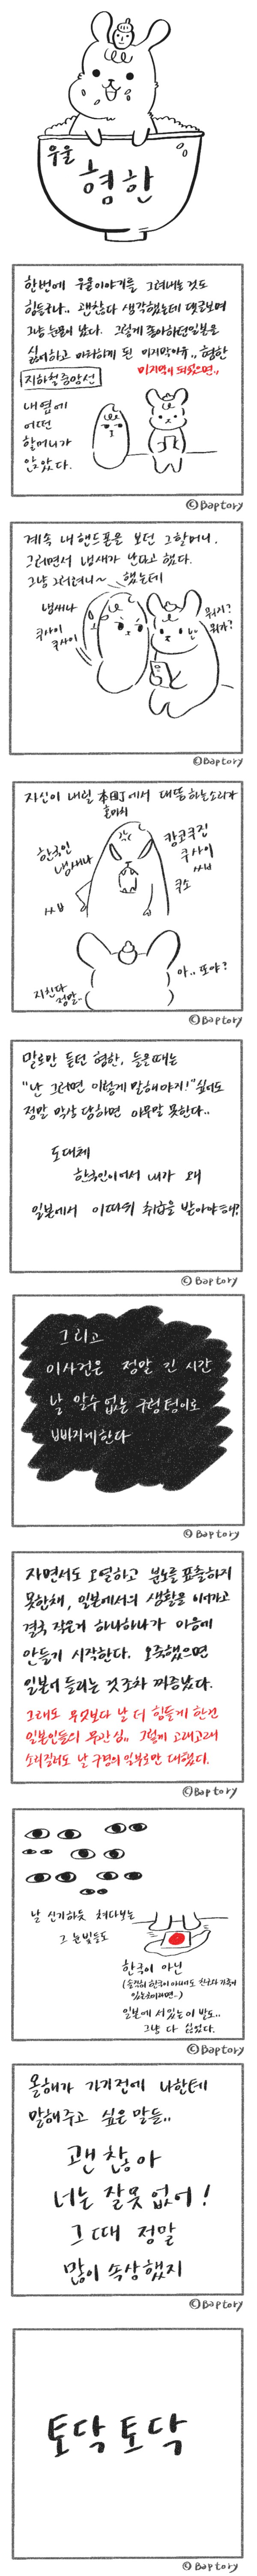 우울
혐한
한번에 우울이야기를 그려내는것도
힘들구나.. 괜찮다 생각했는데 댓글보며
그냥 눈물이 났다. 그렇게 좋아하던일본을
싫어하고 마다하게 된 마지막이유.. 혐한
마지막이 되었으면..
지하철중앙선
내옆에
어떤
할머니가
앉았다.
©Baptory
계속 내핸드폰을 보던 그할머니.
그러면서 냄새가 난다고 했다.
그냥 그러려니~ 했는데
냄새나
쿠사이
쿠사이
뭐지?
뭐가?
©Baptory
자신이 내릴 本町에서 대뜸하는소리가
혼마치
한국인
냄새나
캉코쿠진
쿠사이
ㅆㅂ
쿠소
ㅆㅂ
아.. 또야?
지친다
정말..
©Baptory
말로만 듣던 혐한, 들을때는
"난 그러면 이렇게 말해야지!" 싶어도
정말 막상 당하면 아무말 못한다..
도대체
한국인이어서 내가 왜
일본에서 이따위 취급을 받아야해?
© Baptory
그리고
이사건은 정말 긴 시간
날 알수 없는 구렁텅이로
빠지게한다
© Baptory
자면서도 오열하고 분노를 표출하지
못한채, 일본에서의 생활을 이어가고
결국 작은거 하나하나가 마음에
안들기 시작한다. 오죽했으면
일본어 들리는 것조차 짜증났다.
그래도 무엇보다 날 더 힘들게 한건
일본인들의 무관심.. 그렇게 고래고래
소리질러도 날 구경의 일부로만 대했다.
©Baptory
날 신기하듯 쳐다보는
그 눈빛들도
한국이 아닌
일본에 서있는 이 발도..
그냥 다 싫었다.
©Baptory
올해가 가기전에 나한테
말해주고 싶은 말들..
괜찮아
너는 잘못 없어!
그때 정말
많이 속상했지
©Baptory
토닥토닥
© Baptory